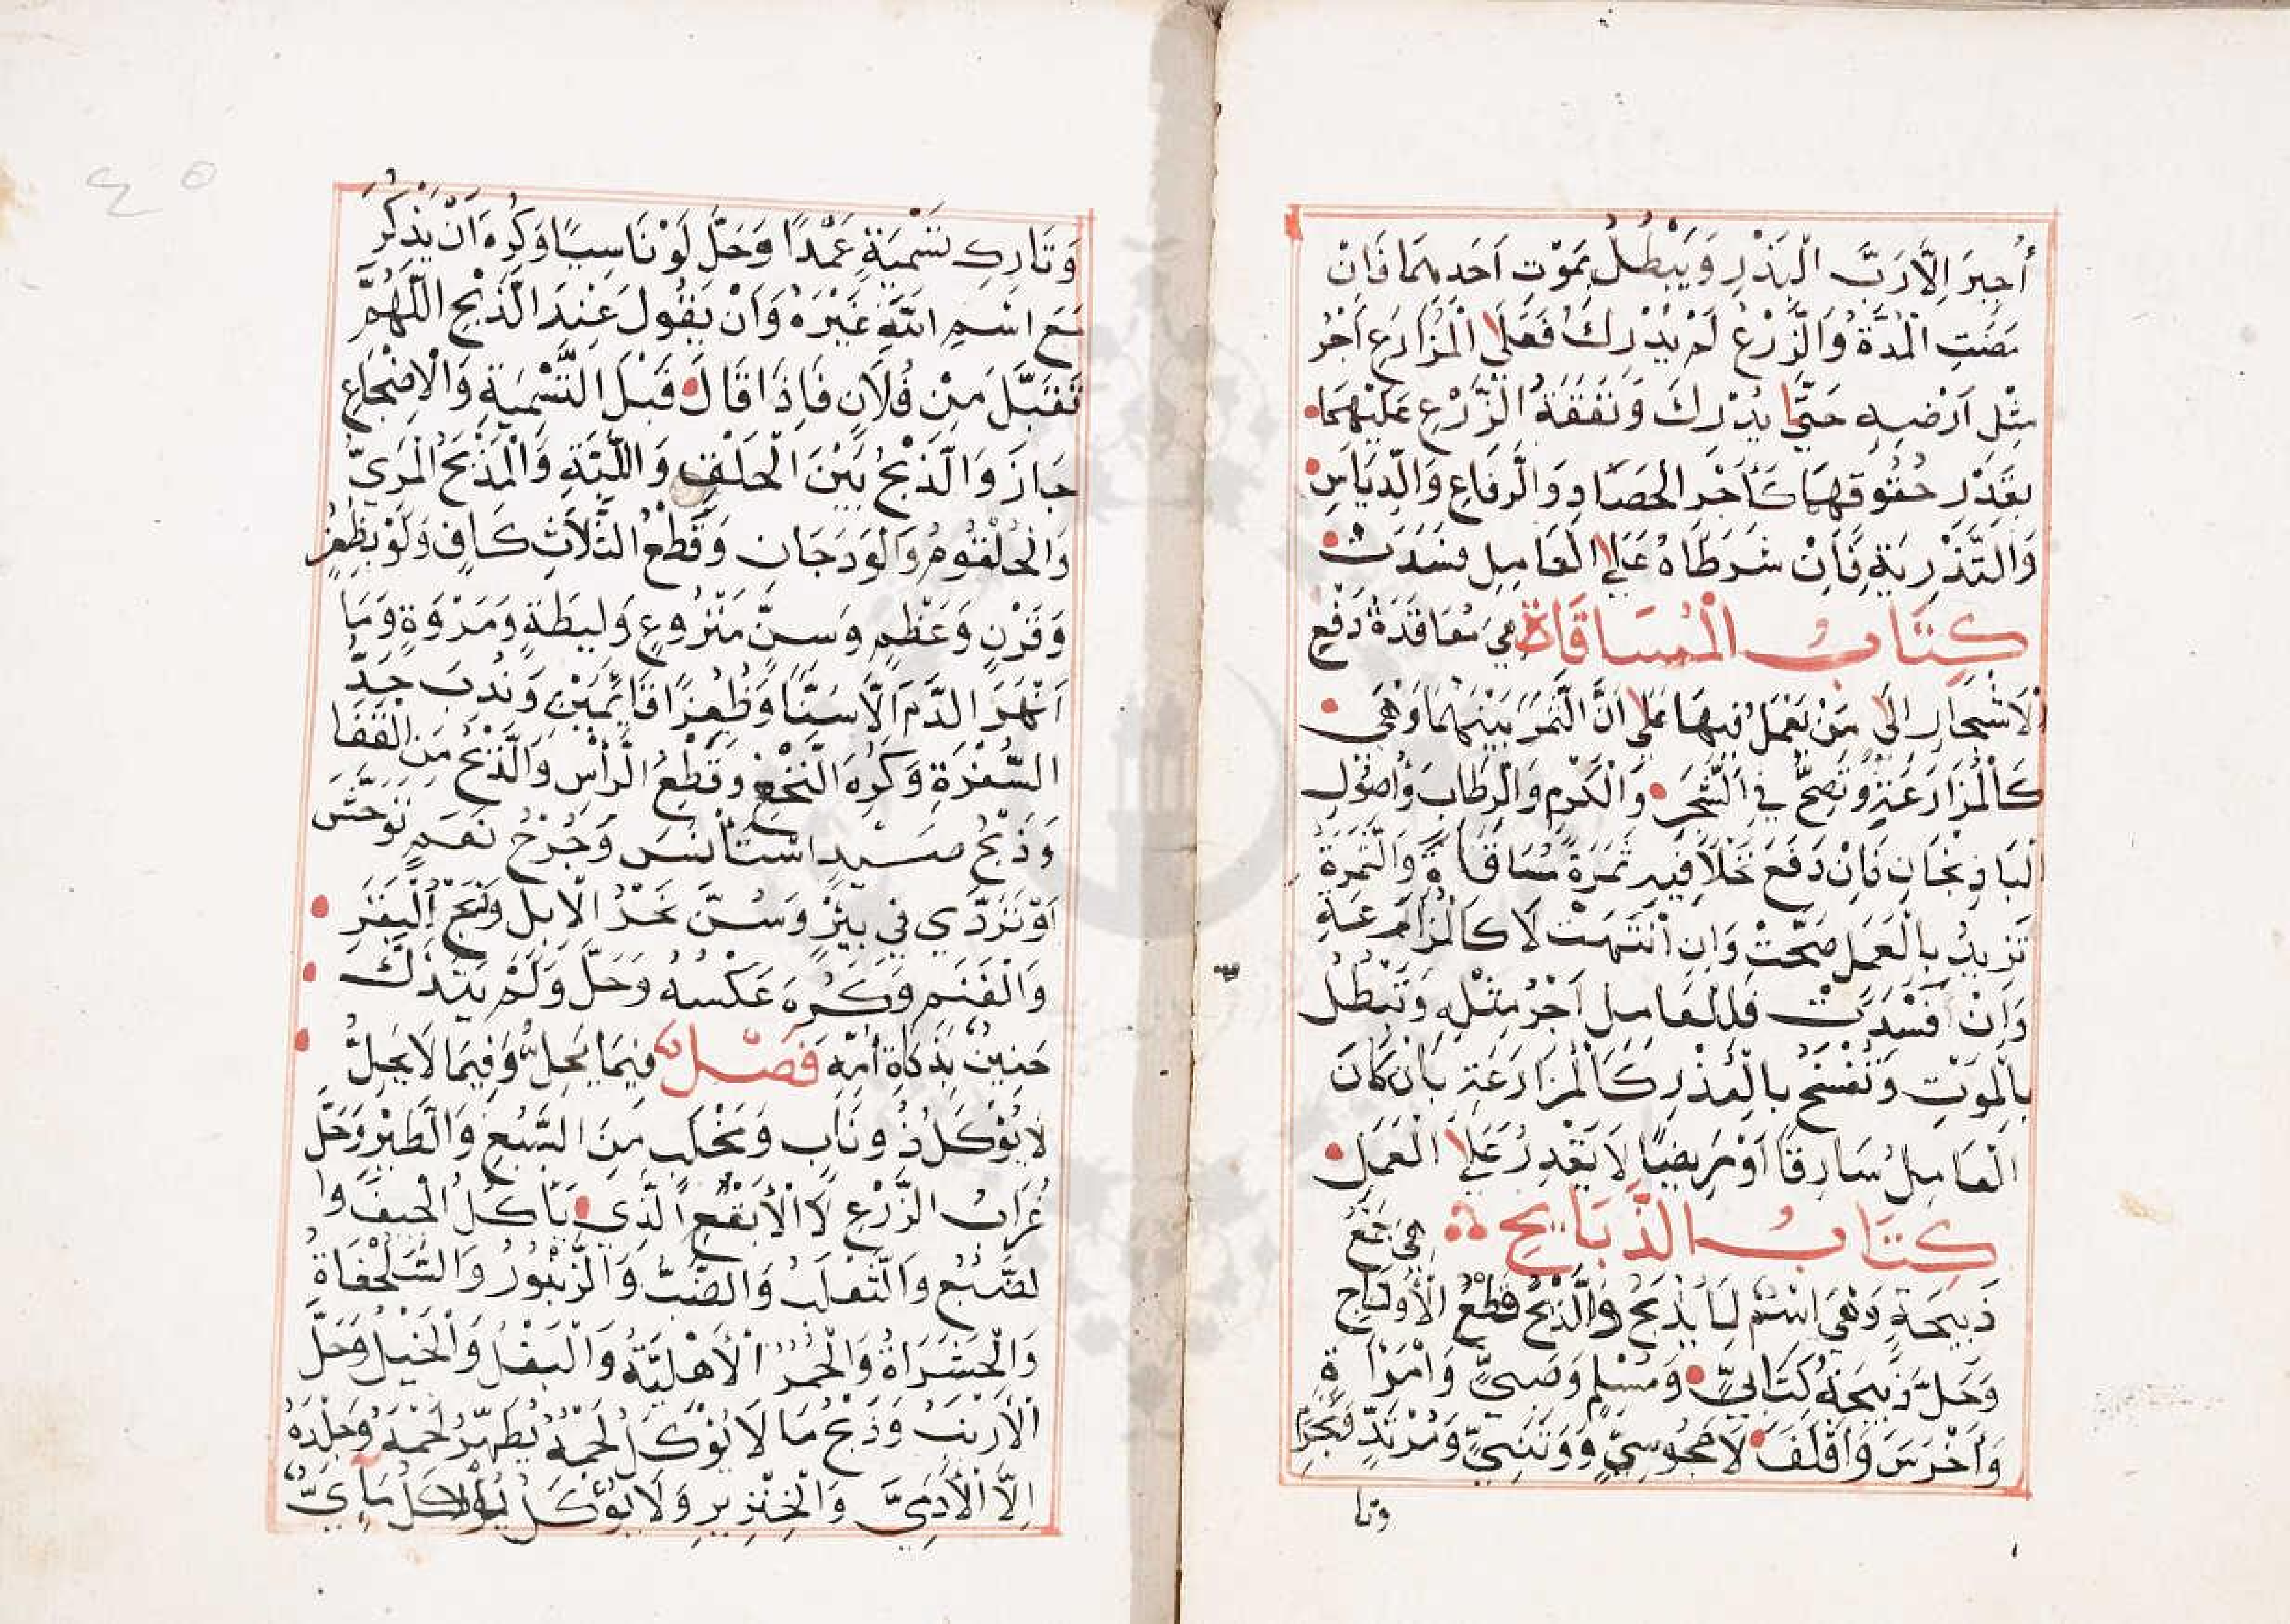 أُجبِرَ اِلَّا رَبَّ الْبَذْرِ وَيَبْطُلُ بِمَوْتِ اَحَدِهِمَا فَاِنْ
مَضَتِ الْمُدَّةُ وَالزَّرْعُ لَمْ يُدْرِكْ فَعَلَى الْمُزَارِعِ اَجْرُ
مِثْلِ اَرْضِهِ حَتَّى يُدْرِكَ وَنَفَقَةُ الزَّرْعِ عَلَيْهِمَا
بِقَدْرِ حُقُوقِهِمَا كَأَجْرِ الْحَصَادِ وَالرَّفَاعِ وَالدِّيَاسِ
وَالتَّذْرِيَةِ فَاِنْ شَرَطَاهُ عَلَى الْعَامِلِ فَسَدَتْ
كِتَابُ الْمُسَاقَاةِ هِيَ مُعَاقَدَةُ دَفْعِ
الْاَشْجَارِ اِلَى مَنْ يَعْمَلُ فِيهَا عَلَى اَنَّ الثَّمَرَ بَيْنَهُمَا وَهِيَ
كَالْمُزَارَعَةِ وَتَصِحُّ فِي الشَّجَرِ وَالْكَرْمِ وَالرِّطَابِ وَأُصُولِ
الْبَاذِنْجَانِ فَاِنْ دَفَعَ نَخْلًا فِيهِ ثَمَرَةٌ مُسَاقَاةً وَالثَّمَرَةُ
تَزِيدُ بِالْعَمَلِ صَحَّتْ وَاِنِ انْتَهَتْ لَا كَالْمُزَارَعَةِ
وَاِنْ فَسَدَتْ فَلِلْعَامِلِ اَجْرُ مِثْلِهِ وَتَبْطُلُ
بِالْمَوْتِ وَتُفْسَخُ بِالْعُذْرِ كَالْمُزَارَعَةِ بِاَنْ كَانَ
الْعَامِلُ سَارِقًا اَوْ مَرِيضًا لَا يَقْدِرُ عَلَى الْعَمَلِ
كِتَابُ الذَّبَايِحِ هِيَ جَمْعُ
ذَبِيحَةٍ وَهِيَ اسْمٌ لِمَا يُذْبَحُ وَالذَّبْحُ قَطْعُ الْأَوْدَاجِ
وَحَلَّ ذَبِيحَةُ كِتَابِيٍّ وَمُسْلِمٍ وَصَبِيٍّ وَامْرَأَةٍ
وَاَخْرَسَ وَاَقْلَفَ لَا مَجُوسِيٍّ وَوَثَنِيٍّ وَمُرْتَدٍّ وَمُحْرِمٍ
وتا
وَتَارِكِ تَسْمِيَةٍ عَمْدًا وَحَلَّ لَوْ نَاسِيًا وَكُرِهَ اَنْ يَذْكُرَ
مَعَ اسْمِ اللَّهِ غَيْرَهُ وَاَنْ يَقُولَ عِنْدَ الذَّبْحِ اللَّهُمَّ
تَقَبَّلْ مِنْ فُلَانٍ فَاِذَا قَالَ قَبْلَ التَّسْمِيَةِ وَالْاِضْجَاعِ
جَازَ وَالذَّبْحُ بَيْنَ الْحَلْقِ وَاللَّبَّةِ وَالْمَذْبَحُ الْمَرِيُّ
وَالْحُلْقُومُ وَالْوَدَجَانِ وَقَطْعُ الثَّلَاثِ كَافٍ وَلَوْ بِظُفْرٍ
وَقَرْنٍ وَعَظْمٍ وَسِنٍّ مَنْزُوعٍ وَلِيطَةٍ وَمَرْوَةٍ وَمَا
اَنْهَرَ الدَّمَ اِلَّا سِنًّا وَظُفْرًا قَائِمَيْنِ وَنُدِبَ حَدُّ
الشَّفْرَةِ وَكُرِهَ النَّخْعُ وَقَطْعُ الرَّأْسِ وَالذَّبْحُ مِنَ الْقَفَا
وَذَبْحُ صَيْدٍ اسْتَأْنَسَ وَجُرْحُ نَعَمٍ تَوَحَّشَ
اَوْ تَرَدَّي فِي بِيْرٍ وَسُنَّ نَحْرُ الْاِبِلِ وَذَبْحُ الْبَقَرِ
وَالْغَنَمِ وَكُرِهَ عَكْسُهُ وَحَلَّ وَلَمْ يَتَذَكَّ
جَنِينٌ بِذَكَاةِ أُمِّهِ فَصْلٌ فِيمَا يَحِلُّ وَفِيمَا لَا يَحِلُّ
لَا يُؤْكَلُ ذُو نَابٍ وَمَخْلَبٍ مِنَ السَّبُعِ وَالطَّيْرِ وَحَلَّ
غُرَابُ الزَّرْعِ لَا الْأَبْقَعِ الَّذِي يَأْكُلُ الْجِيَفَ وَا
لضَّبُعُ وَالثَّعْلَبُ وَالضَّبُّ وَالزُّنْبُورُ وَالسُّلَحْفَاةُ
وَالْحَشَرَاةُ وَالْحُمُرُ الْأَهْلِيَّةُ وَالْبَغْلُ وَالْخَيْلُ وَحَلَّ
الْأَرْنَبُ وَذَبْحُ مَا لَا يُؤْكَلُ لَحْمُهُ يُطَهِّرُ لَحْمَهُ وَجِلْدَهُ
اِلَّا الْأَدَمِيَّ وَالْخِنْزِيرِ وَلَا يُؤْكَلُ مَائِيٌّ
٤٥